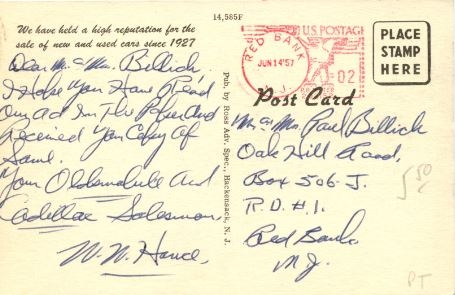 14,585F
We have held a high reputation for the
sale of new and used cars since 1927
Dear Mr & Mrs. Billich
I Hope You Have Read
Our ad In The Paper And
Received Your Copy of
Same.
Your Oldsmobile And
Cadillac Salesman,
W. W.
Pub. by Ross Adv. Spec., Hackensack, N. J.
RED BANK
JUN 14 '57
N. J.
U.S. POSTAGE
02
PLACE
STAMP
HERE
Post Card
Mr & Mrs Paul Billich
Oak Hill Road,
Box 506-J.
R.D. #1.
Red Bank
N.J.
5 50
PT